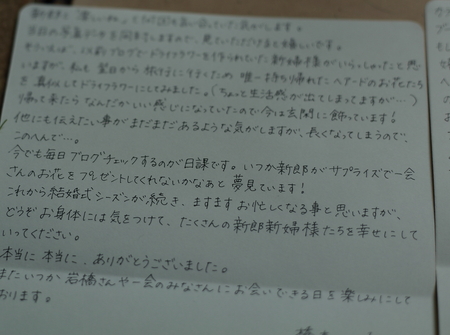 当日の写真が少を同封さしますので、見ていただけると嬉しいです。
そういえば、以前ブログでドライフラワーを作られていた新婦様がいらっしゃったと思
いますが、私も翌日から旅行にいそしくため唯一持ち帰れたヘアードのお花たち
を真似してドライフラワーにしてみました。(ちょっと生活感が出てしまってますが…)
帰って来たらなんだかいい感じになっていたので今は玄関に飾っています!
他にも伝えたい事がまだまだあるような気がしますが、長くなってしまうので、
このへんで…。
今でも毎日ブログチェックするのが日課です。いつか新郎がサプライズで一会
さんのお花をプレゼントしてくれないかなあと夢見ています!
これから結婚式シーズンが続き、ますますお忙しくなる事と思いますが、
どうぞお身体には気をつけて、たくさんの新郎新婦様たちを幸せにして
いってください。
本当に本当に、ありがとうございました。
またいつか岩橋さんや一会のみなさんにお会いできる日を楽しみにして
おります。